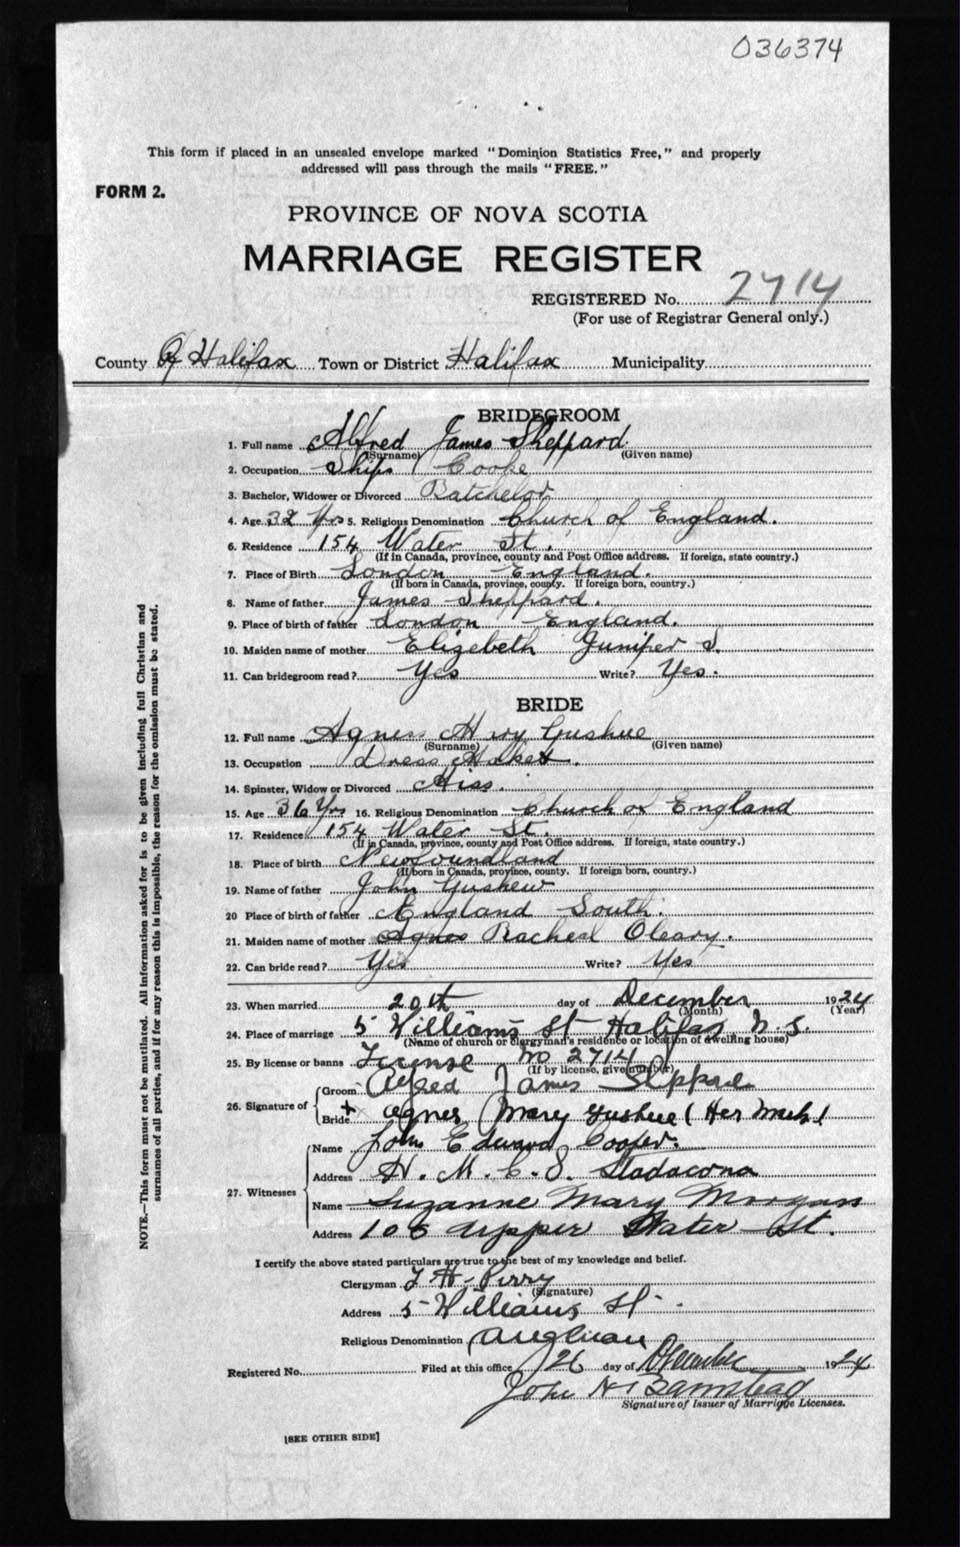 036374
This form if placed in an unsealed envelope marked "Dominion Statistics Free," and properly
addressed will pass through the mails "FREE."
FORM 2.
PROVINCE OF NOVA SCOTIA
MARRIAGE REGISTER
REGISTERED No. 2714
(For use of Registrar General only.)
County Of Halifax Town or District Halifax Municipality
BRIDEGROOM
1. Full name Alfred James Sheppard
(Surname) (Given name)
2. Occupation Ships Cooke
3. Bachelor, Widower or Divorced Batchelor
4. Age 32 Yrs 5. Religious Denomination Church of England.
6. Residence 154 Water St.
(If in Canada, province, county and Post Office address. If foreign, state country.)
7. Place of Birth London England.
(If born in Canada, province, county. If foreign born, country.)
8. Name of father James Sheppard.
9. Place of birth of father London England.
10. Maiden name of mother Elizebeth Juniper S.
11. Can bridegroom read? Yes Write? Yes.
BRIDE
12. Full name Agness Mary Gushue
(Surname) (Given name)
13. Occupation Dress Maker.
14. Spinster, Widow or Divorced Miss.
15. Age 36 Yrs 16. Religious Denomination Church of England
17. Residence 154 Water St.
(If in Canada, province, county and Post Office address. If foreign, state country.)
18. Place of birth Newfoundland
(If born in Canada, province, county. If foreign born, country.)
19. Name of father John Gushew
20 Place of birth of father England South.
21. Maiden name of mother Agnes Racheal Oleary.
22. Can bride read? Yes Write? Yes
23. When married 20th day of December 1924
(Month) (Year)
24. Place of marriage 5 Williams St Halifax N.S.
(Name of church or clergyman's residence or location of dwelling house)
25. By license or banns License No 2714
(If by license, give number)
26. Signature of Groom Alfred James
Bride + Agnes Mary Gushue (Her Mark)
27. Witnesses Name John Edward Cooper.
Address H. M. C. S. Stadacona
Name Suzanne Mary Morgan
Address 106 Upper Water St.
I certify the above stated particulars are true to the best of my knowledge and belief.
Clergyman Perry
(Signature)
Address 5 Williams St.
Religious Denomination Anglican
Registered No. Filed at this office 26 day of December 1924
John H Barnstead
Signature of Issuer of Marriage Licenses.
[SEE OTHER SIDE]
NOTE.—This form must not be mutilated. All information asked for is to be given including full Christian and
surnames of all parties, and if for any reason this is impossible, the reason for the omission must be stated.